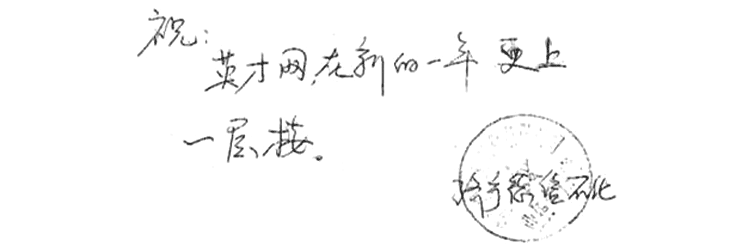 祝：
英才网在新的一年更上
一层楼。
石化